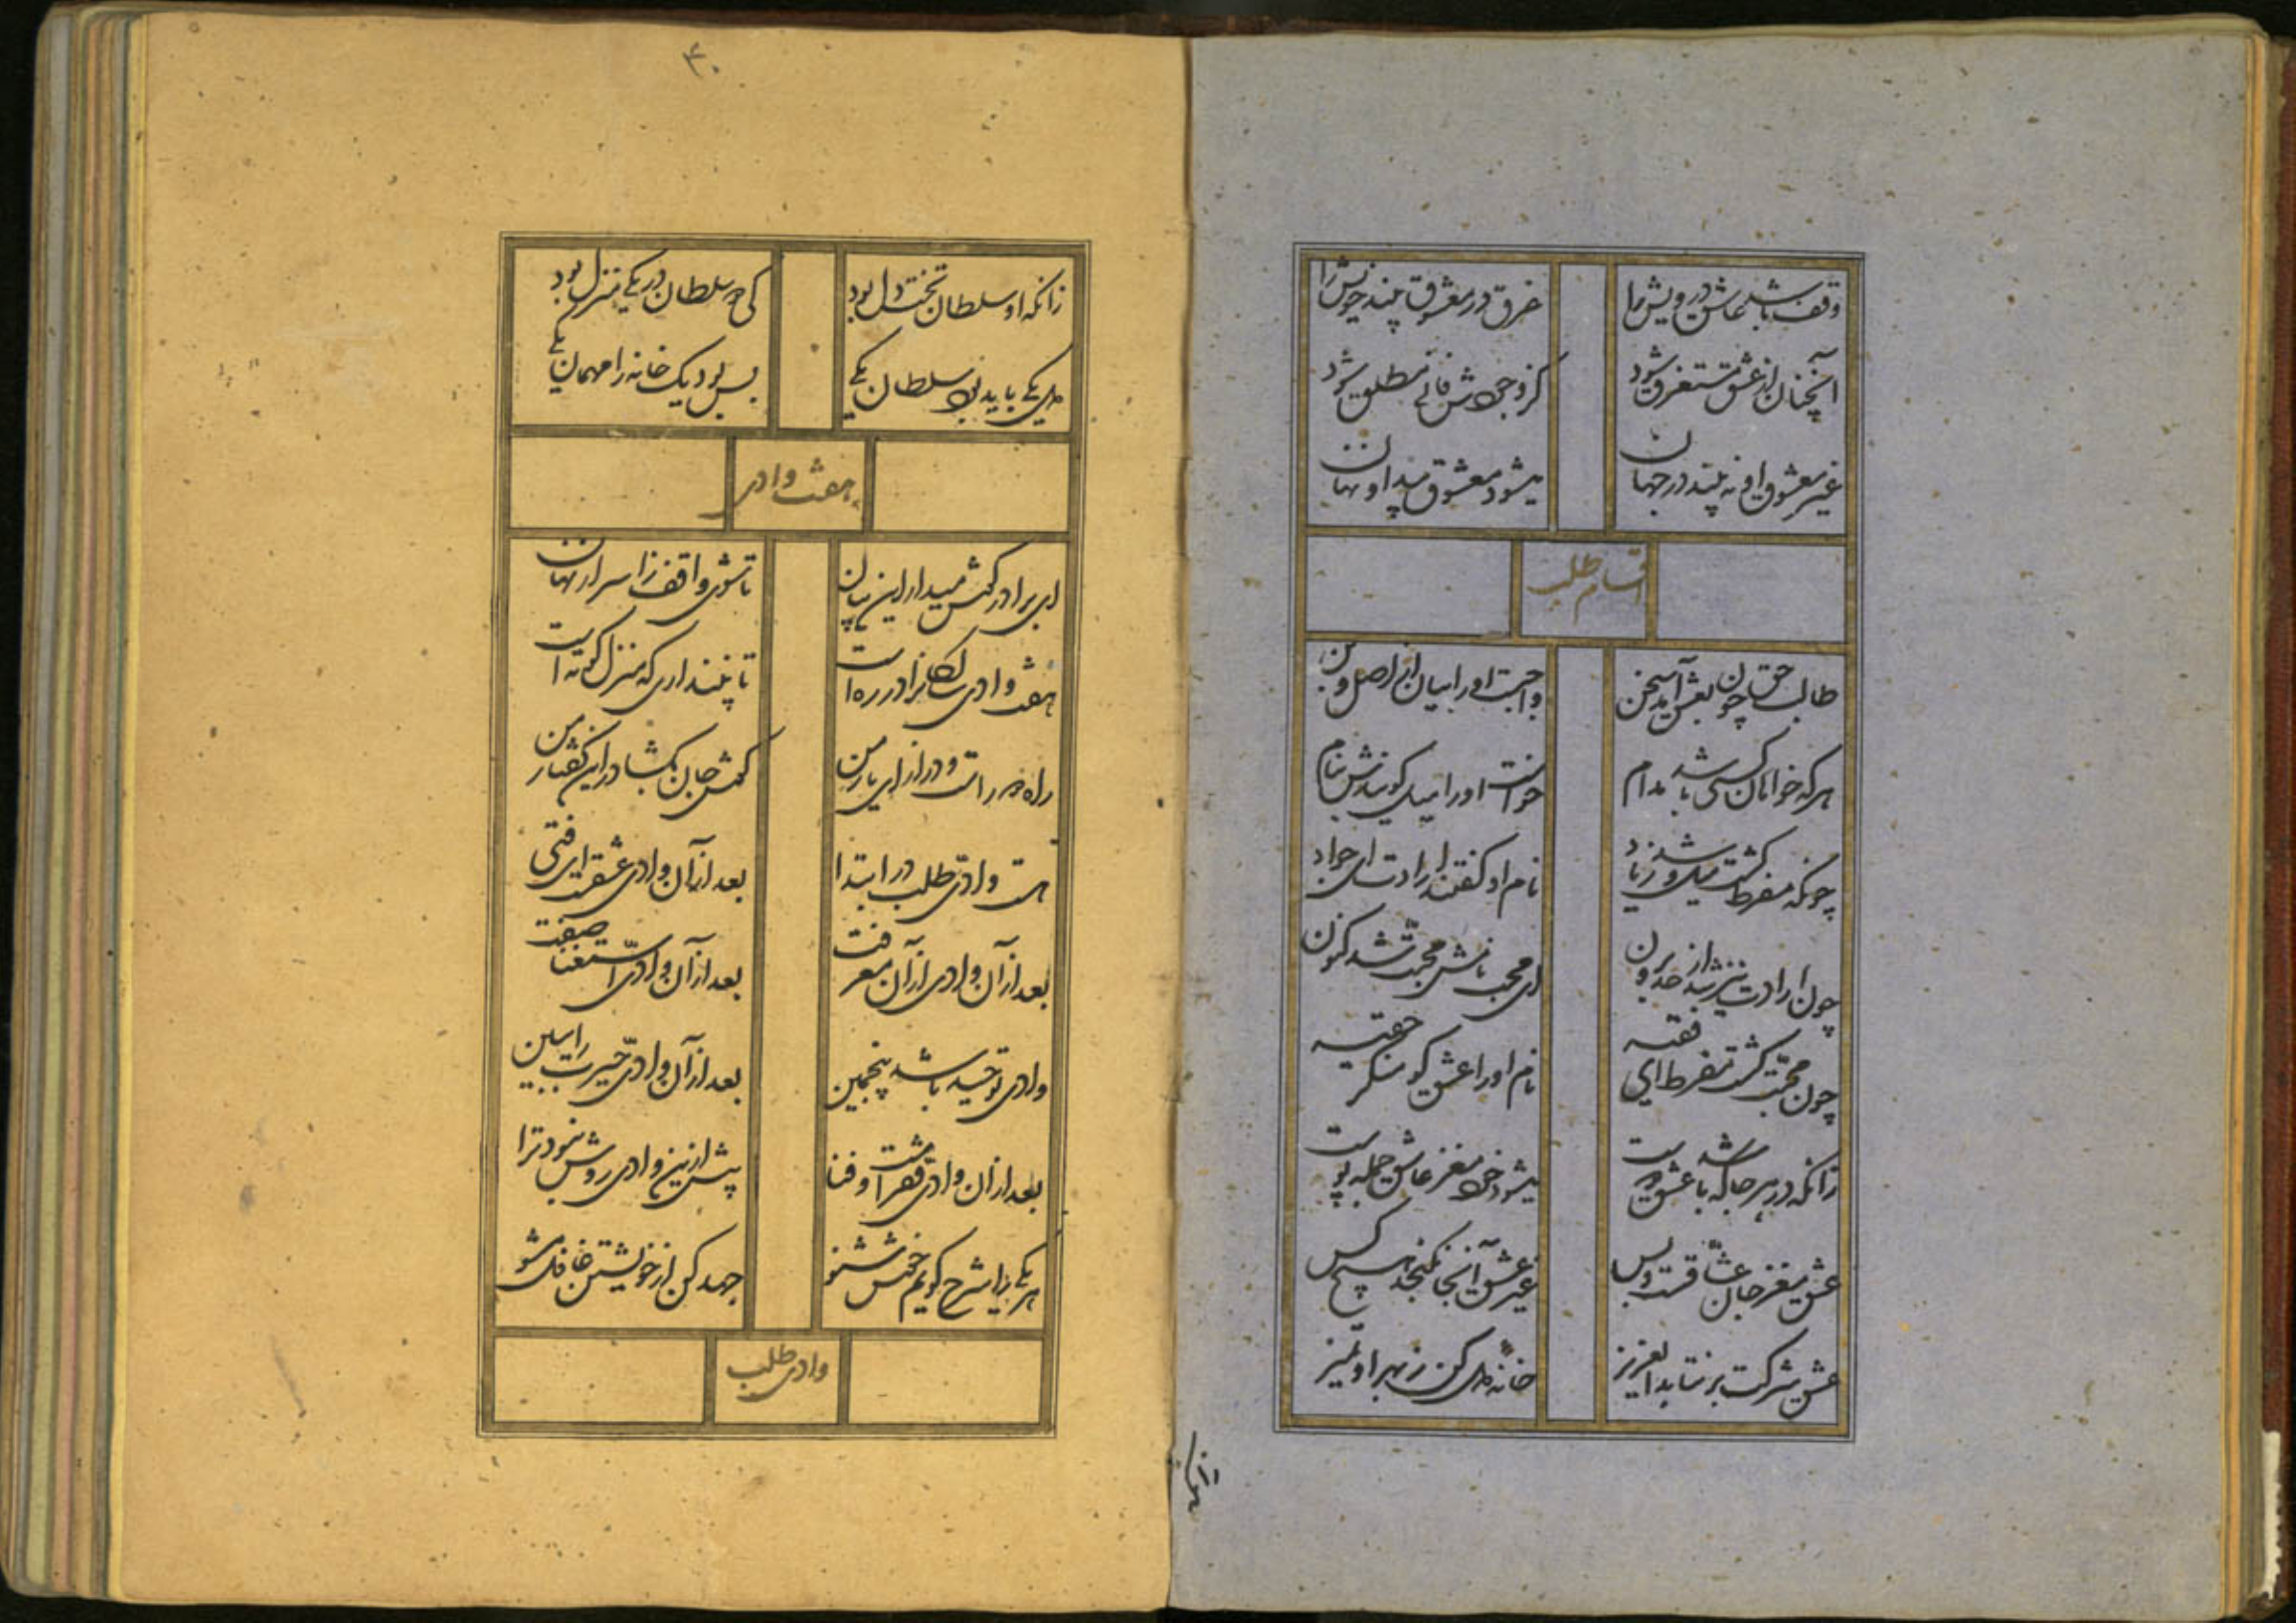 وقف باشد عاشق درویش را
غرق در معشوق بیند خویش را
آنچنان از عشق مستغرق شود
کز وجودش فانی مطلق شود
غیر معشوق او نه بیند در جهان
میشود معشوق پیدا و نهان
اقسام طلب
طالب حق چون بعشق آمد سخن
واجبست او را بیان از اصل و بن
هر که خواهان کسی باشد مدام
خواست او را میل گو سازش بنام
چونکه مفرط گشت میل و شد زیاد
نام او گفتند ارادت ای جواد
چون ارادت نیز شد از حد برون
ای محب نامش محبت شد کنون
چون محبت گشت مفرط ای فقیه
نام او را عشق گو
زانکه در هر جا که باشد عشق دوست
میشود خود مغز عاشق جمله پوست
عشق مغز جان عشاقست و بس
غیر عشق آنجا نگنجد هیچ کس
عشق شرکت بر نتابد ای عزیز
خانه دل کن ز بهر او تمیز
زانکه
۴۰
زانکه او سلطان تخت دل بود
کی دو سلطان در یکی منزل بود
دل یکی باید بود سلطان یکی
بس بود یک خانه را مهمان یکی
هفت وادی
ای برادر گوش میدار این بیان
تا شوی واقف ز اسرار نهان
هفت وادی سالکانرا در ره است
تا نپنداری که منزل کوته است
راه دور است و دراز ای یار من
گوش جان بگشا در این گفتار من
هست وادی طلب در ابتدا
بعد از آن وادی عشقست ای فتی
بعد از آن وادی از آن معرفت
بعد از آن وادی استغنا صفت
وادی توحید باشد پنجمین
بعد از آن وادی حیرت را ببین
بعد از آن وادی فقر است و فنا
پیش ازین وادی روش نبود ترا
هر یکی را شرح گویم خوش شنو
جهد کن از خویشتن غافل مشو
وادی طلب